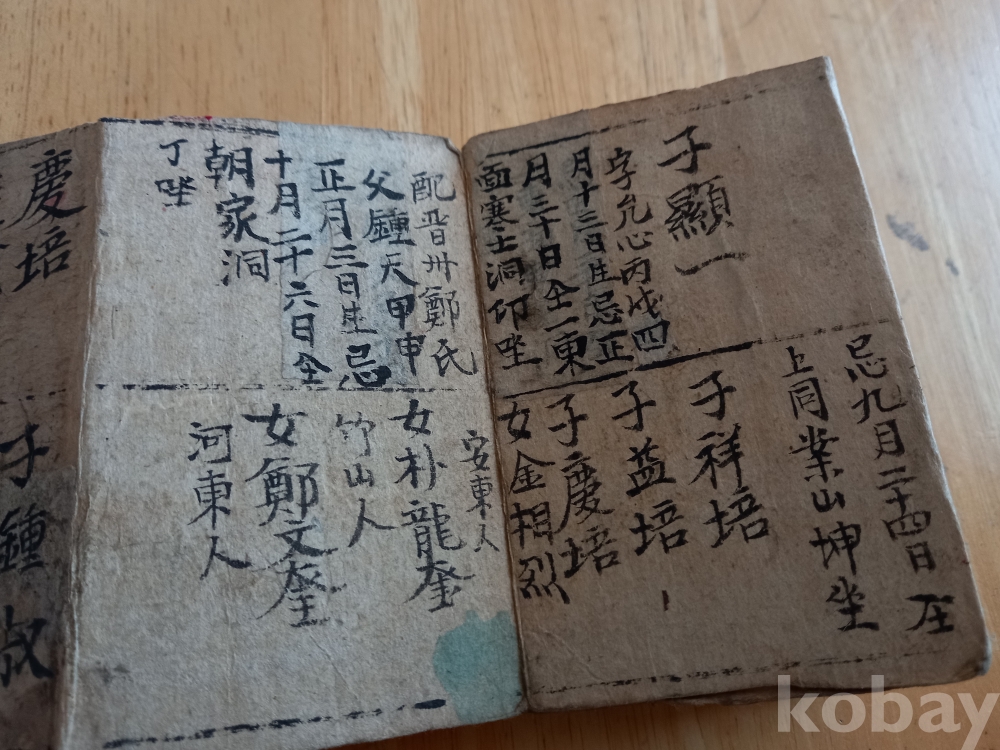 忌九月二十四日 在
上同業山坤坐
子顯一
字允心丙戌四
月十三日生忌正
月三十日仝一東
面寒士洞卯坐
子祥培
子益培
子慶培
女金相烈
安東人
配晋州鄭氏
父鍾天甲申
正月三日生忌
十月二十六日仝
朝家洞
丁坐
女朴龍奎
竹山人
女鄭文奎
河東人
慶培
子鍾叔
kobay